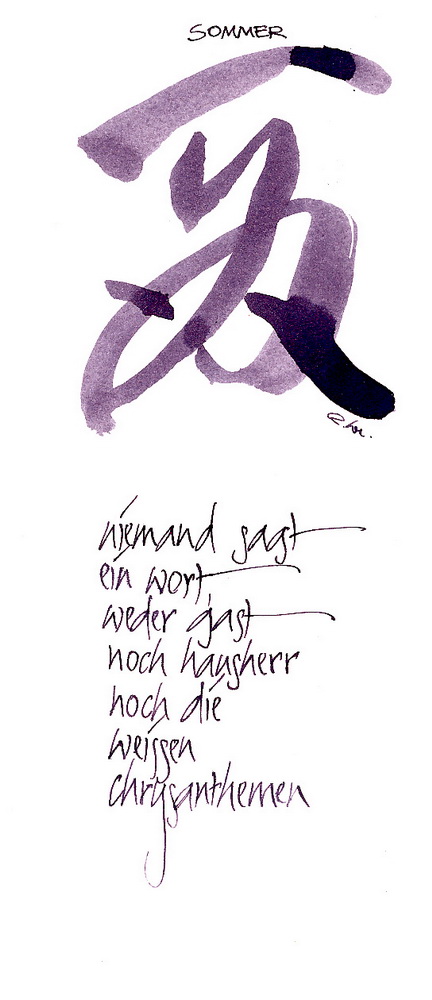 SOMMER
niemand sagt
ein wort,
weder gast
noch hausherr
noch die
weissen
chrysanthemen